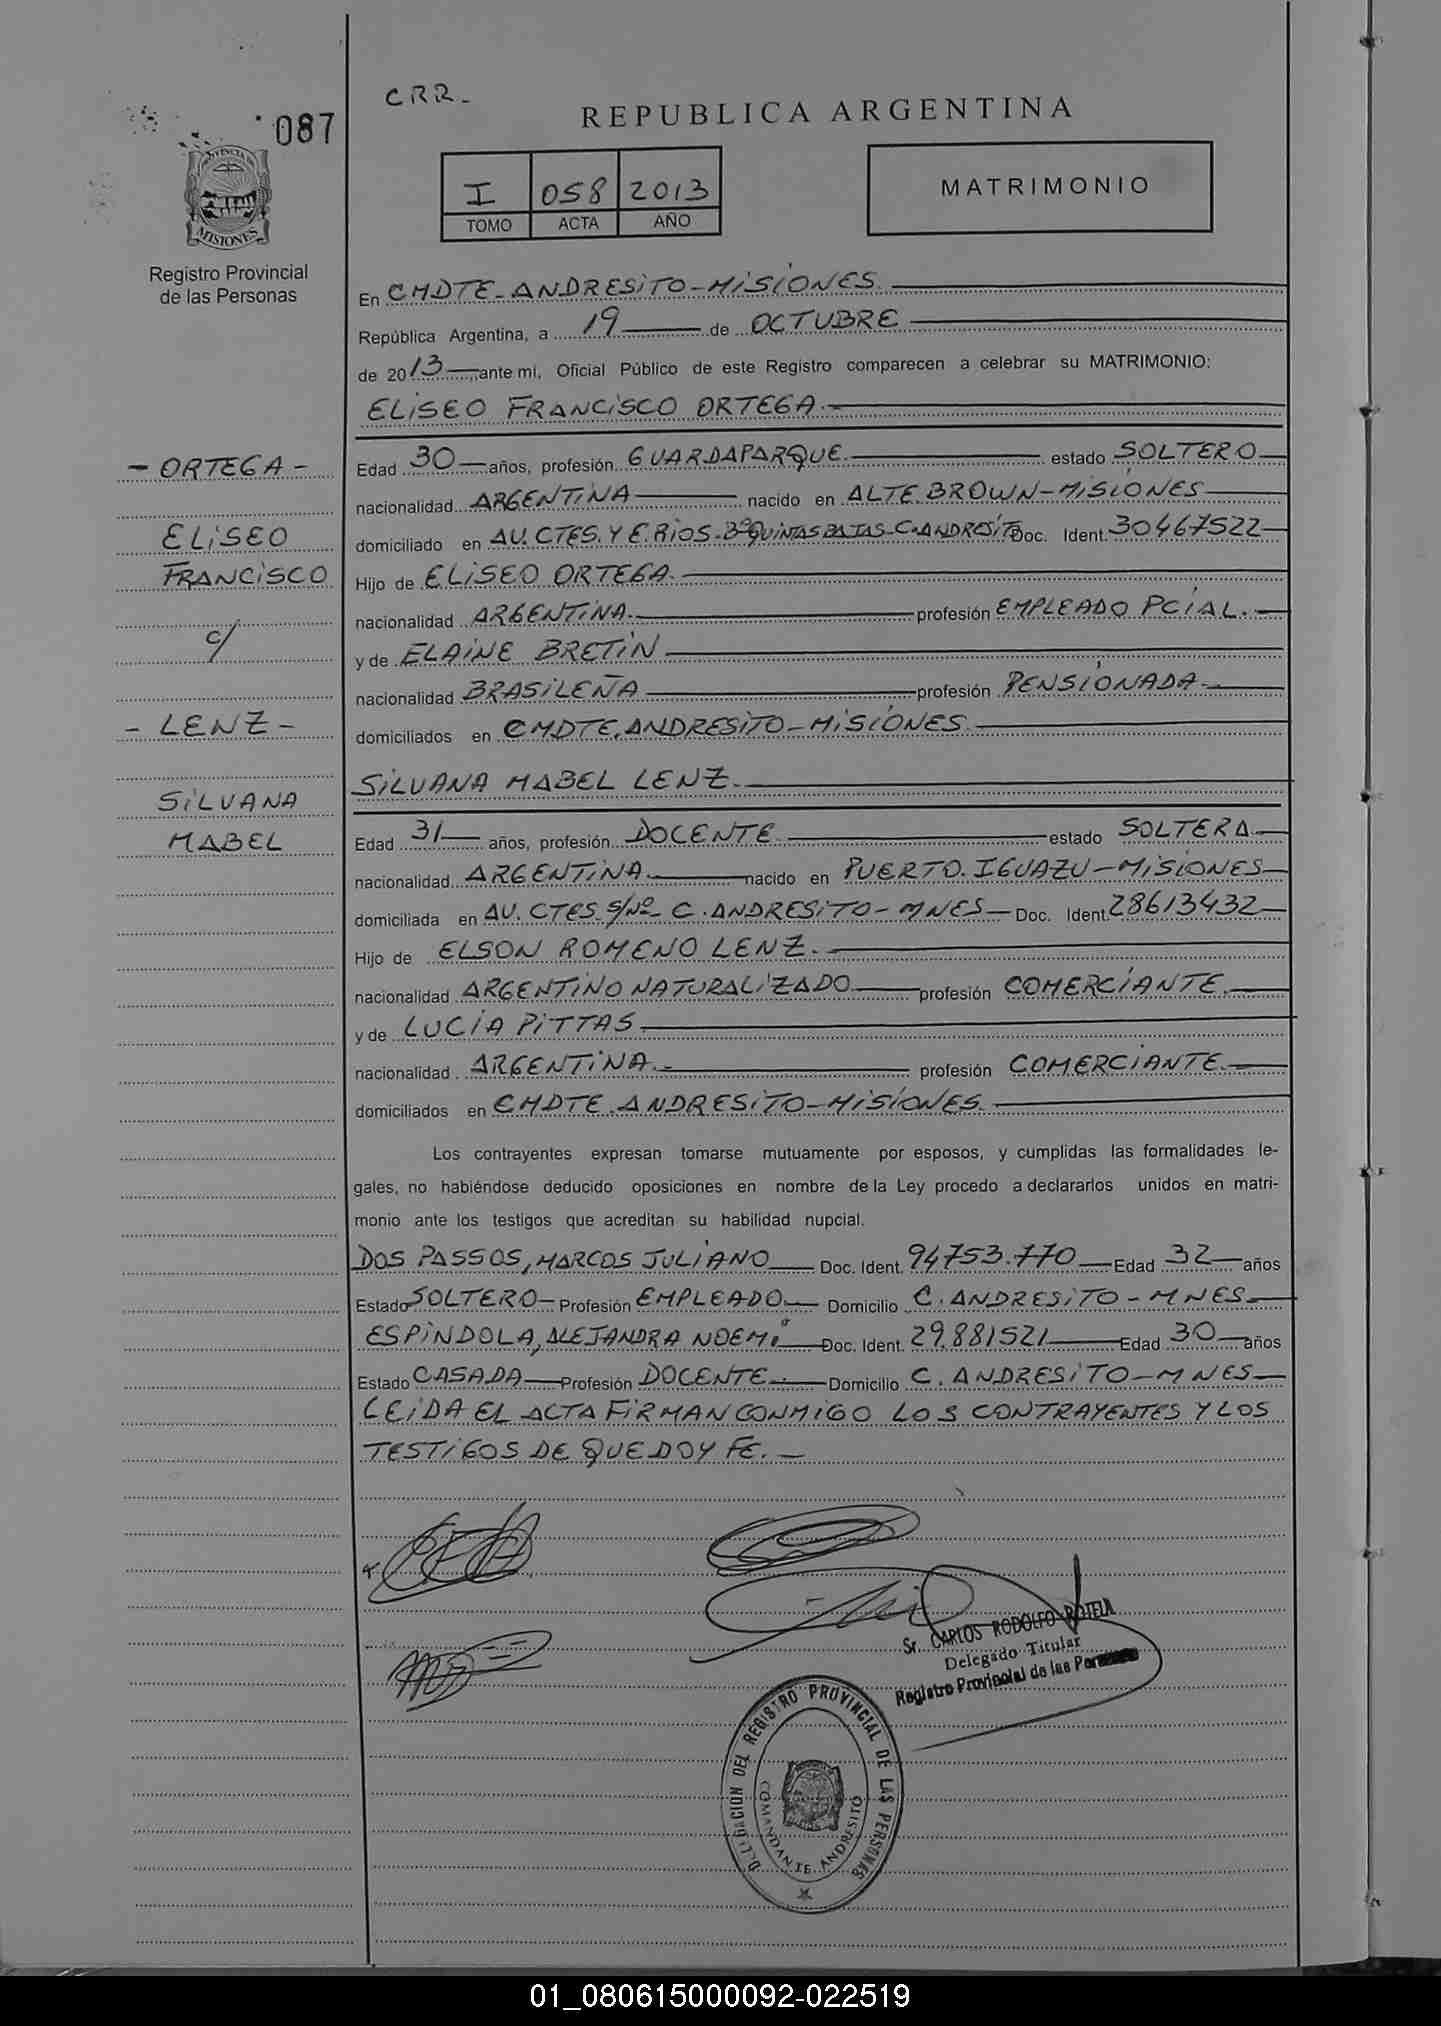 CRR_
087
REPUBLICA ARGENTINA
I 058 2013
TOMO ACTA AÑO
MATRIMONIO
PROVINCIA DE
MISIONES
Registro Provincial
de las Personas
En CMDTE. ANDRESITO-MISIONES.
República Argentina, a 19 de OCTUBRE
de 2013, ante mi, Oficial Público de este Registro comparecen a celebrar su MATRIMONIO:
ELISEO FRANCISCO ORTEGA.
Edad 30 años, profesión GUARDAPARQUE. estado SOLTERO
nacionalidad ARGENTINA nacido en ALTE. BROWN-MISIONES
domiciliado en AV. CTES. Y E. RIOS. Bº QUINTAS BAJAS-C. ANDRESITO Doc. Ident. 30467522
Hijo de ELISEO ORTEGA.
nacionalidad ARGENTINA. profesión EMPLEADO PCIAL.
y de ELAINE BRETIN
nacionalidad BRASILEÑA profesión PENSIONADA
domiciliados en CMDTE. ANDRESITO-MISIONES.
SILVANA MABEL LENZ.
Edad 31 años, profesión DOCENTE estado SOLTERA
nacionalidad ARGENTINA. nacido en PUERTO IGUAZU-MISIONES
domiciliada en AV. CTES. S/Nº C. ANDRESITO-MNES Doc. Ident 28613432
Hijo de ELSON ROMENO LENZ.
nacionalidad ARGENTINO NATURALIZADO profesión COMERCIANTE.
y de LUCIA PITTAS
nacionalidad ARGENTINA. profesión COMERCIANTE.
domiciliados en CMDTE. ANDRESITO-MISIONES.
- ORTEGA -
ELISEO
FRANCISCO
c/
- LENZ -
SILVANA
MABEL
Los contrayentes expresan tomarse mutuamente por esposos, y cumplidas las formalidades le-
gales, no habiéndose deducido oposiciones en nombre de la Ley procedo a declararlos unidos en matri-
monio ante los testigos que acreditan su habilidad nupcial.
DOS PASSOS, MARCOS JULIANO Doc. Ident. 94753.770 Edad 32 años
Estado SOLTERO Profesión EMPLEADO Domicilio C. ANDRESITO-MNES
ESPINDOLA, ALEJANDRA NOEMI Doc. Ident. 29.881521 Edad 30 años
Estado CASADA Profesión DOCENTE. Domicilio C. ANDRESITO-MNES
LEIDA EL ACTA FIRMAN CONMIGO LOS CONTRAYENTES Y LOS
TESTIGOS DE QUE DOY FE.
Sr. CARLOS RODOLFO ROTELA
Delegado Titular
Registro Provincial de las Personas
DELEGACION DEL REGISTRO PROVINCIAL DE LAS PERSONAS
COMANDANTE ANDRESITO
01_080615000092-022519